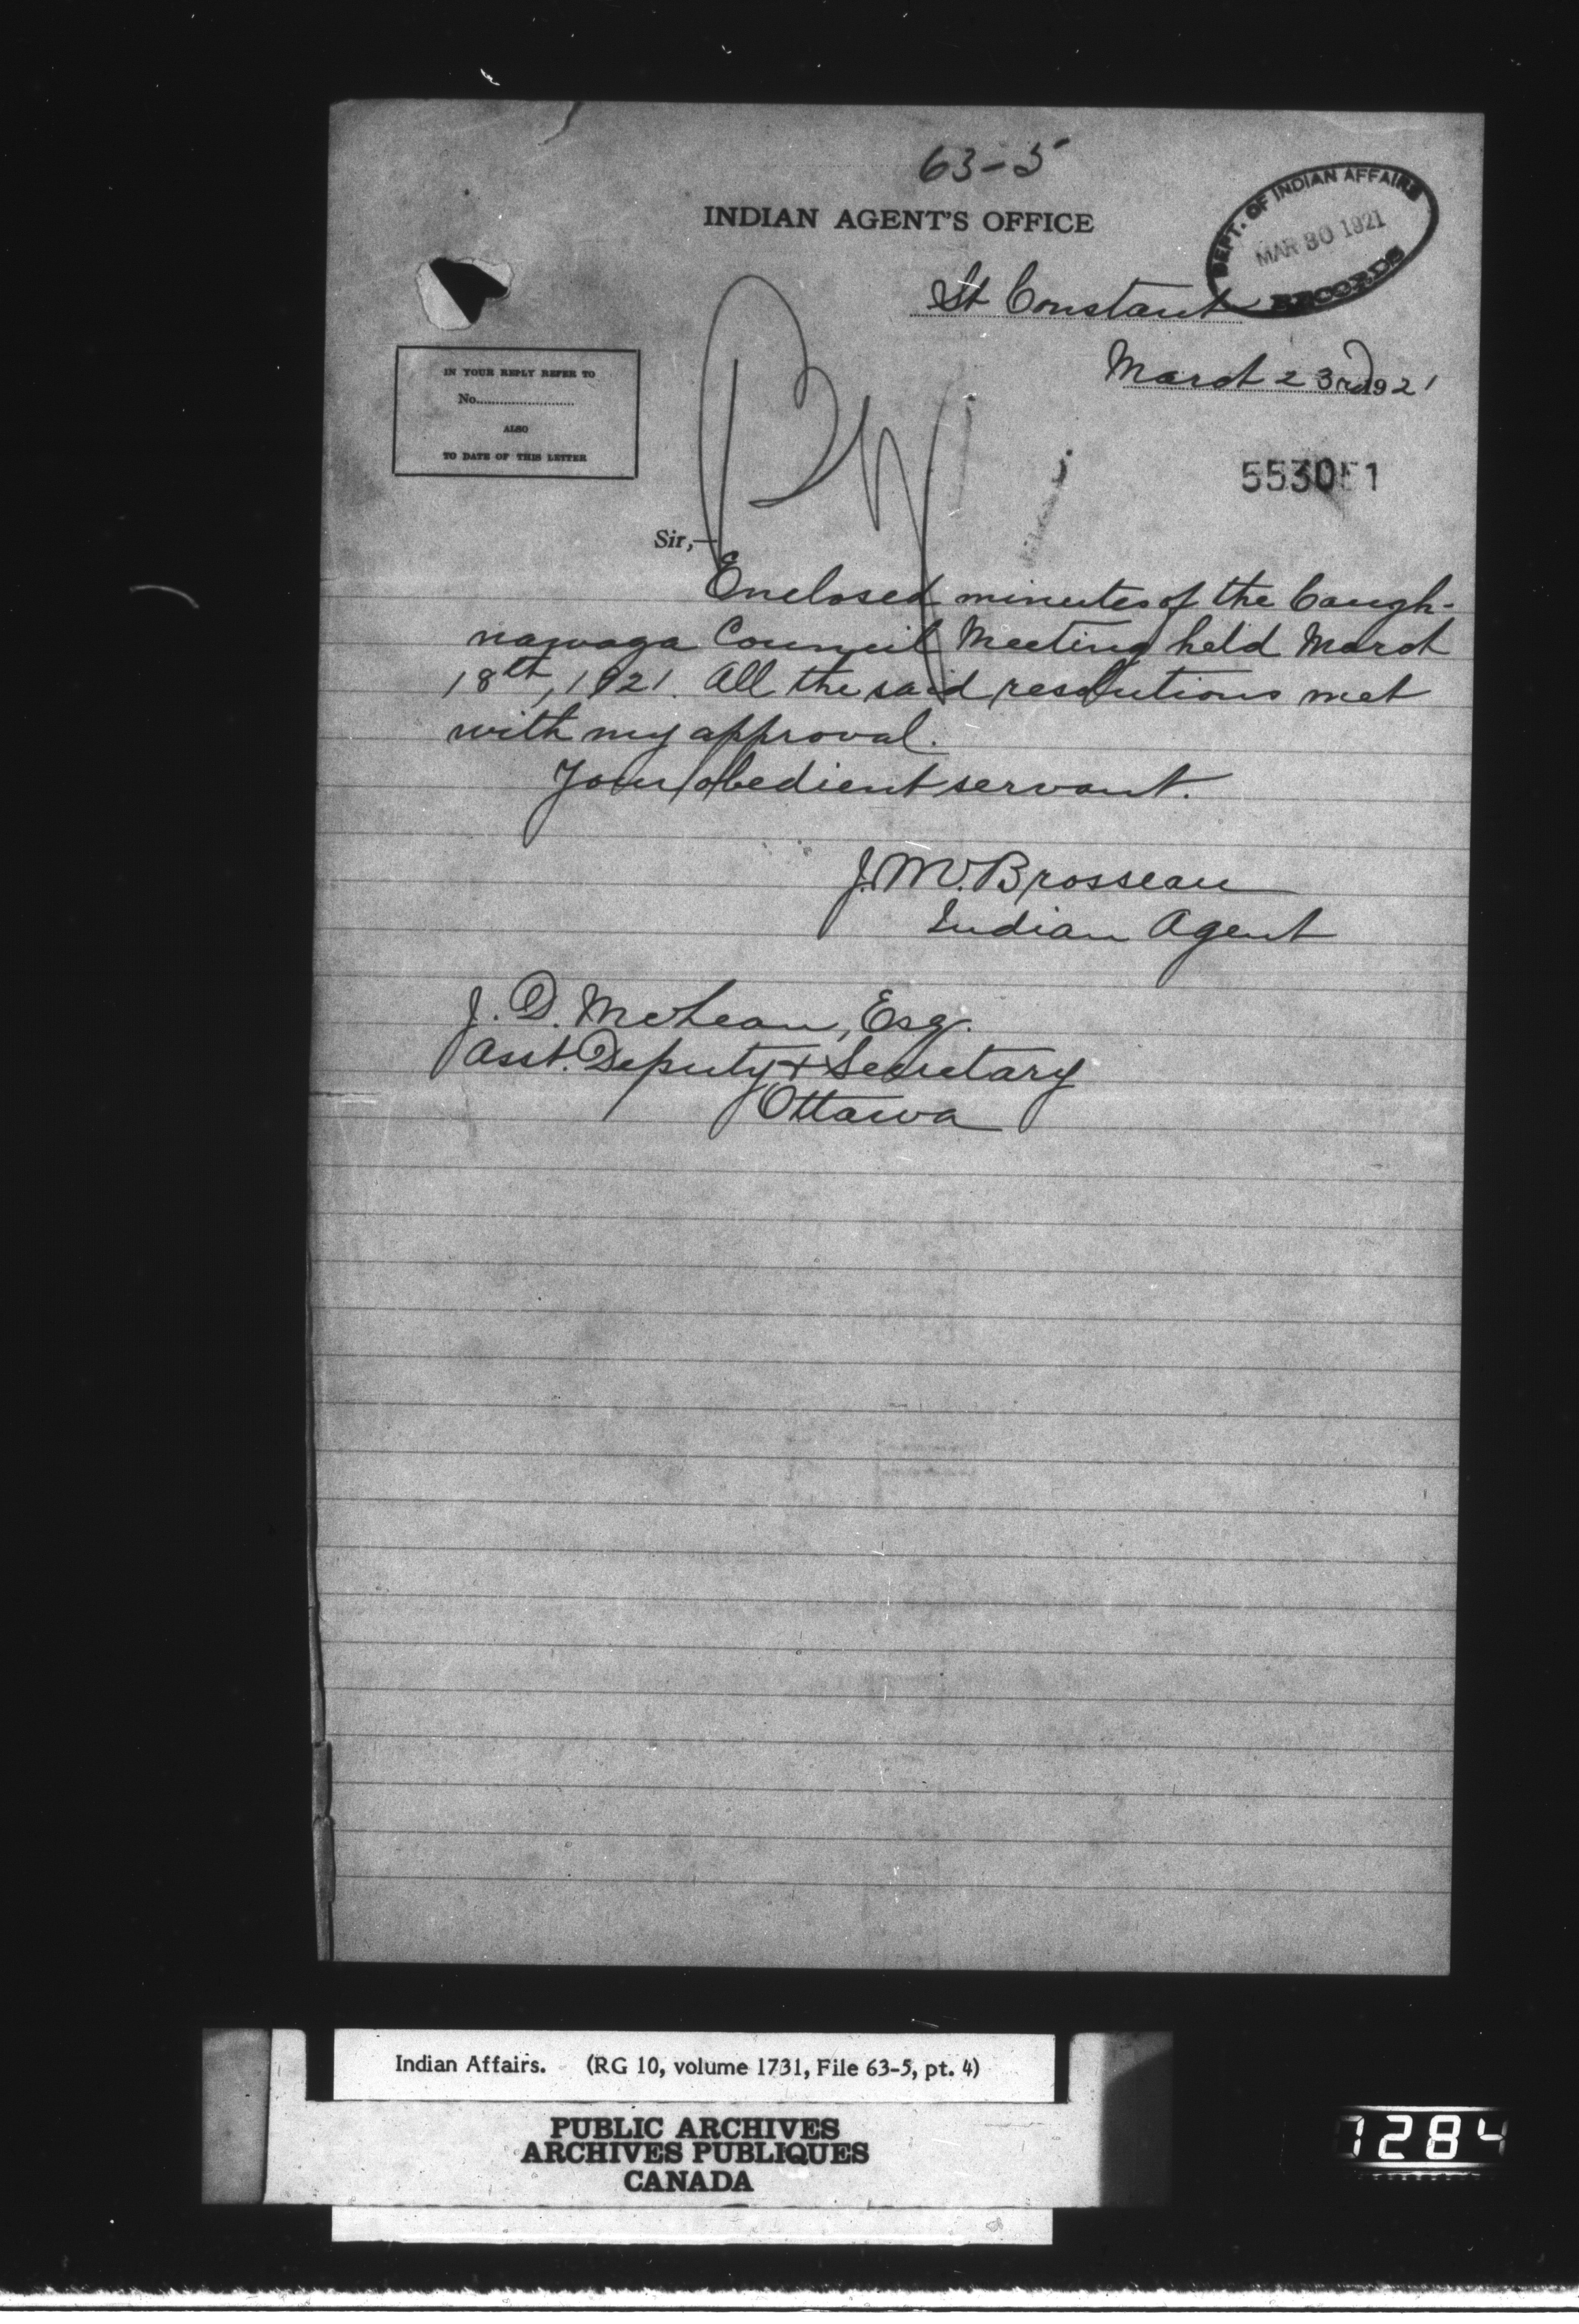 63-5
INDIAN AGENT'S OFFICE
DEPT. OF INDIAN AFFAIRS
MAR 30 1921
RECORDS
St Constant
March 23rd 1921
IN YOUR REPLY REFER TO
No.
ALSO
TO DATE OF THIS LETTER
Sir,—
Enclosed minutes of the Caugh-
nawaga Council Meeting held March
18th, 1921. All the said resolutions met
with my approval.
Your obedient servant.
J. M. Brosseau
Indian Agent
J. D. McLean, Esq.
Asst. Deputy + Secretary
Ottawa
Indian Affairs. (RG 10, volume 1731, File 63-5, pt. 4)
PUBLIC ARCHIVES
ARCHIVES PUBLIQUES
CANADA
1284